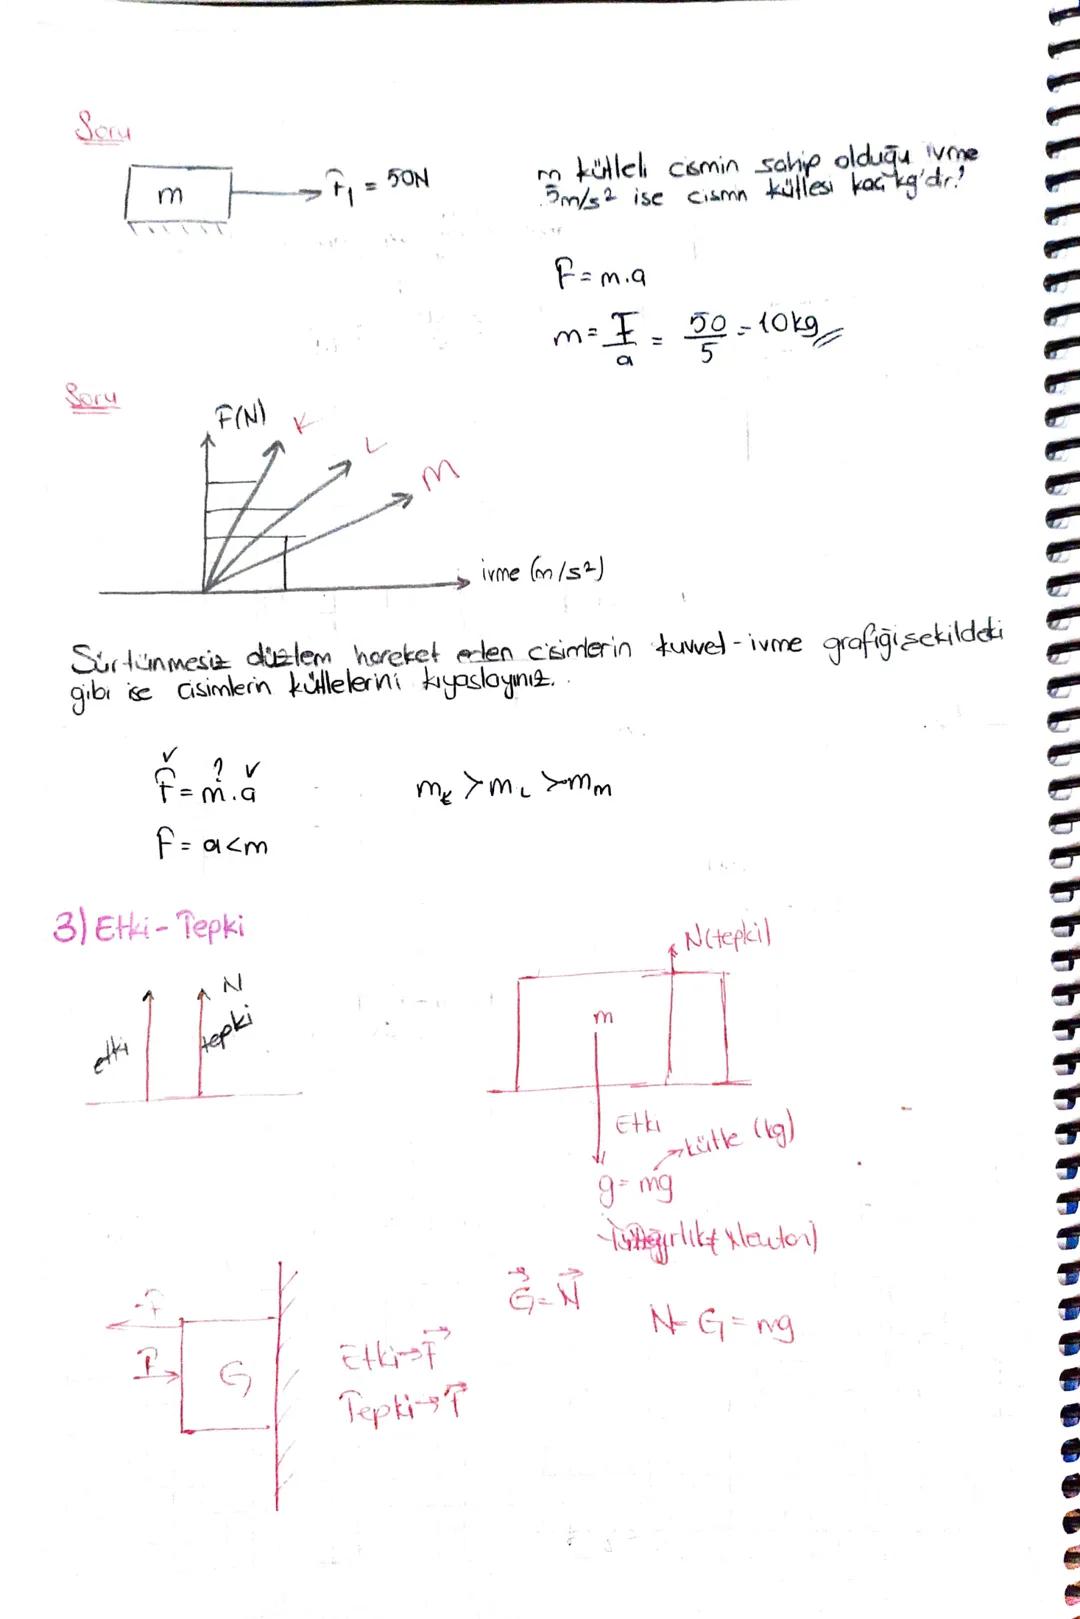 Soru
m
F₁ = 50N
m kütleli cismin sahip olduğu ivme
5m/s² ise cismn kütlesi kaç kg'dır?
F = m.a
m = F/a = 50/5 = 10kg
Soru
F(N)
K
L
M
ivme (m/s²)
Sürtünmesiz düzlem hareket eden cisimlerin kuvvet-ivme grafiği şekildeki
gibi ise cisimlerin kütlelerini kıyaslayınız.
F = m.a
?
mK > mL > mm
F = a<m
3) Etki-Tepki
etki
N
tepki
N(tepki)
m
Etki
kütle (kg)
g = mg
Newton)
G = N
N = G = mg
-F
F
G
Etki→F
Tepki→